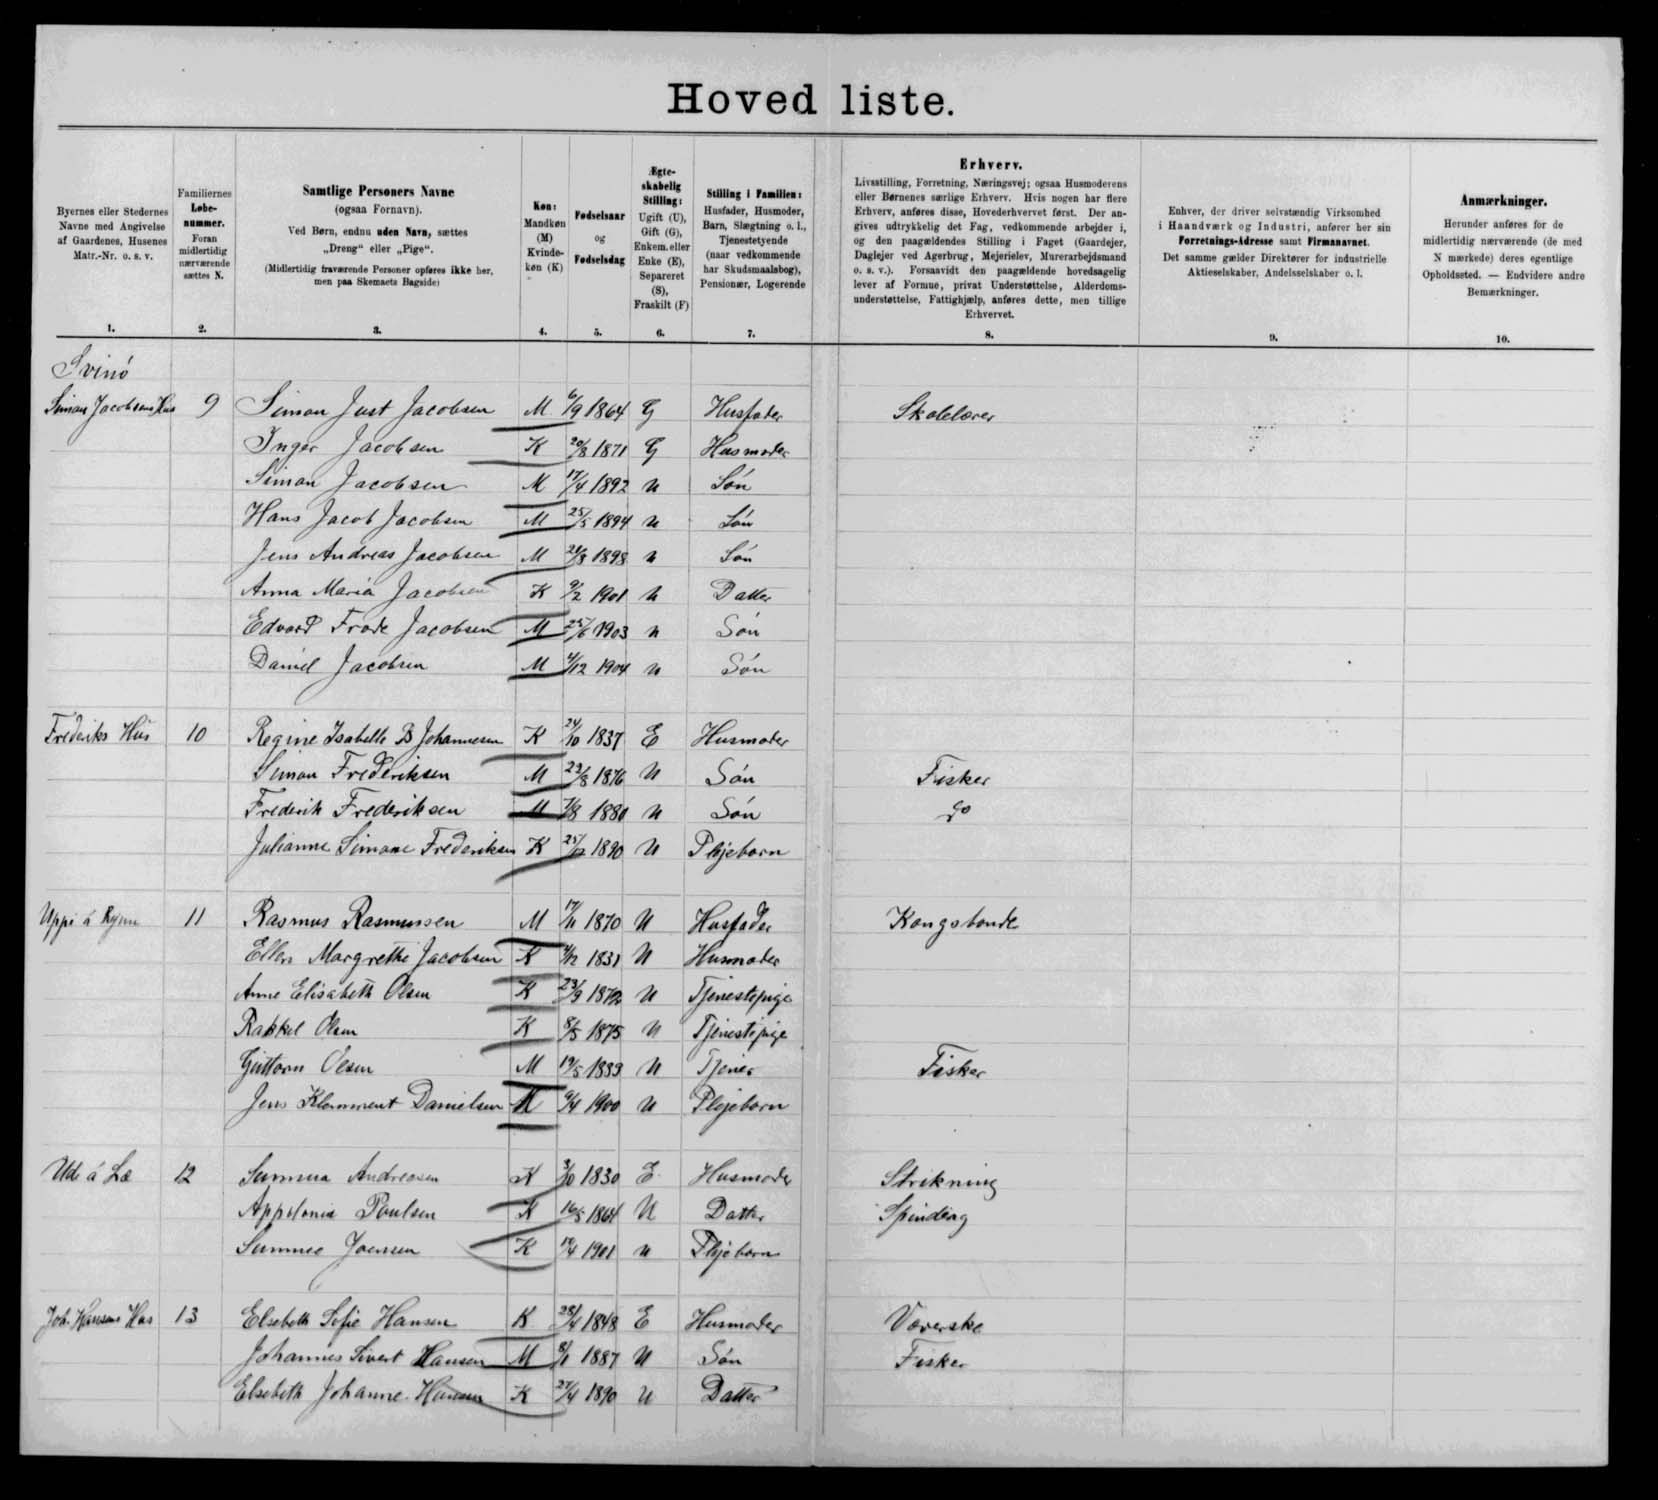 Hoved liste.
Byernes eller Stedernes Navne med Angivelse af Gaardenes, Husenes Matr.-Nr. o. s. v.
1.
Familiernes Løbe-nummer. Foran midlertidig nærværende sættes N.
2.
Samtlige Personers Navne
(ogsaa Fornavn).
Ved Børn, endnu uden Navn, sættes
„Dreng“ eller „Pige“.
(Midlertidig fraværende Personer opføres ikke her,
men paa Skemaets Bagside)
3.
Køn:
Mandkøn
(M)
Kvinde-
køn (K)
4.
Fødselsaar
og
Fødselsdag
5.
Ægte-
skabelig
Stilling:
Ugift (U),
Gift (G),
Enkem. eller
Enke (E),
Separeret
(S),
Fraskilt (F)
6.
Stilling i Familien:
Husfader, Husmoder,
Barn, Slægtning o. l.,
Tjenestetyende
(naar vedkommende
har Skudsmaalsbog),
Pensionær, Logerende
7.
Erhverv.
Livsstilling, Forretning, Næringsvej; ogsaa Husmoderens
eller Børnenes særlige Erhverv. Hvis nogen har flere
Erhverv, anføres disse, Hovederhvervet først. Der an-
gives udtrykkelig det Fag, vedkommende arbejder i,
og den paagældendes Stilling i Faget (Gaardejer,
Daglejer ved Agerbrug, Mejerielev, Murerarbejdsmand
o. s. v.). Forsaavidt den paagældende hovedsagelig
lever af Formue, privat Understøttelse, Alderdoms-
understøttelse, Fattighjælp, anføres dette, men tillige
Erhvervet.
8.
Enhver, der driver selvstændig Virksomhed
i Haandværk og Industri, anfører her sin
Forretnings-Adresse samt Firmanavnet.
Det samme gælder Direktører for industrielle
Aktieselskaber, Andelsselskaber o. l.
9.
Anmærkninger.
Herunder anføres for de
midlertidig nærværende (de med
N mærkede) deres egentlige
Opholdssted. — Endvidere andre
Bemærkninger.
10.
Svinö
Simon Jacobsens Hus 9 Simon Just Jacobsen M 6/9 1864 G Husfader Skolelærer
Inger Jacobsen K 20/8 1871 G Husmoder
Simon Jacobsen M 17/4 1892 U Sön
Hans Jacob Jacobsen M 25/5 1894 U Sön
Jens Andreas Jacobsen M 21/8 1898 U Sön
Anna Maria Jacobsen K 9/2 1901 U Datter
Edvard Frode Jacobsen M 25/6 1903 U Sön
Daniel Jacobsen M 4/12 1904 U Sön
Frederiks Hus 10 Regine Isabelle B Johannesen K 24/10 1837 E Husmoder
Simon Frederiksen M 29/8 1876 U Sön Fisker
Frederik Frederiksen M 7/8 1880 U Sön do
Julianne Simone Frederiksen K 25/12 1890 U Plejebarn
Uppi á Rynu 11 Rasmus Rasmussen M 17/11 1870 U Husfader Kongsbonde
Ellen Margrethe Jacobsen K 4/12 1831 U Husmoder
Anne Elisabeth Olsen K 23/9 1872 U Tjenestepige
Rakkel Olsen K 8/5 1875 U Tjenestepige
Guttorm Olsen M 19/5 1883 U Tjener Fisker
Jens Klemment Danielsen M 9/4 1900 U Plejebarn
Ud á Læ 12 Sunneva Andreasen K 3/10 1830 E Husmoder Strikning
Appolonia Poulsen K 16/5 1864 U Datter Spinding
Joensen K 19/4 1901 U Plejebarn
Joh. Hansens Hus 13 Elsebeth Sofie Hansen K 28/4 1848 E Husmoder Væverske
Johannes Sivert Hansen M 8/1 1887 U Sön Fisker
Elsebeth Johanne Hansen K 27/4 1890 U Datter